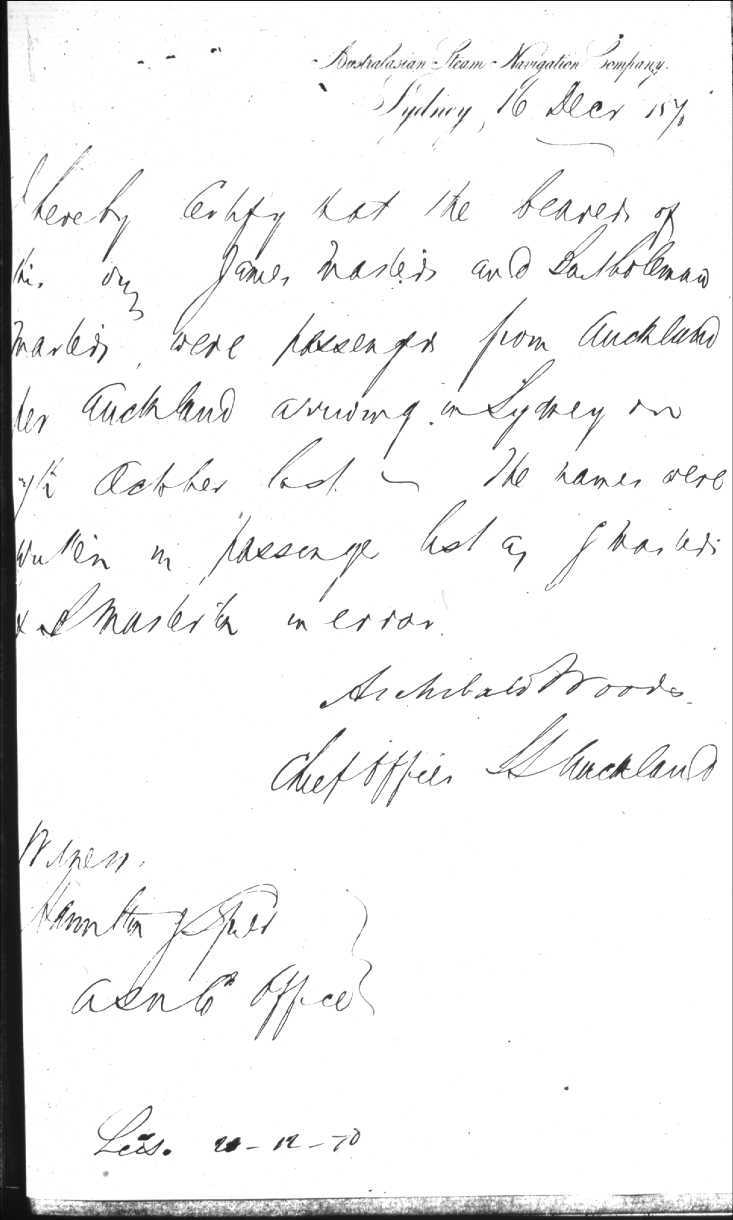 Australasian Steam Navigation Company.
Sydney, 16 Decr 1870
I hereby Certify that the bearers of
this James Masters and Bartholemew
Masters, were passengers from Auckland
per Auckland arriving in Sydney on
7th October last — The names were
written in passenge list as J Masters
& Masterton in error.
Archibald Woods.
Chief Officer SS Auckland
Witness.
Hamilton J
ASN Co Office
20-12-70